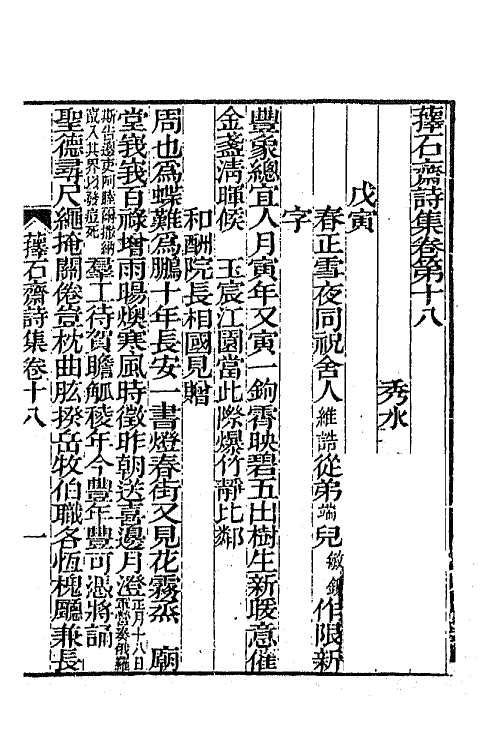 蘀石齋詩集卷第十八
秀水
戊寅
春正雪夜同祝舍人維誥從弟端兒敏錡作限新
字
豐象總宜人月寅年又寅一鉤霄映碧五出樹生新暖意催
金盞淸暉候玉宸江園當此際爆竹靜比鄰
和酬院長相國見贈
周也爲蝶難爲鵬十年長安一書燈春街又見花霧烝廟
堂峩峩百祿增雨暘燠寒風時徵昨朝送喜邊月澄正月十八日
斯告邊吏阿睦爾撒納
竄入其界內發痘死羣工待賀瞻觚稜年今豐年豐可憑將誦
聖德尋尺繩掩關倦豈枕曲肱揆岳牧伯職各恆槐廳兼長
蘀石齋詩集卷十八
一